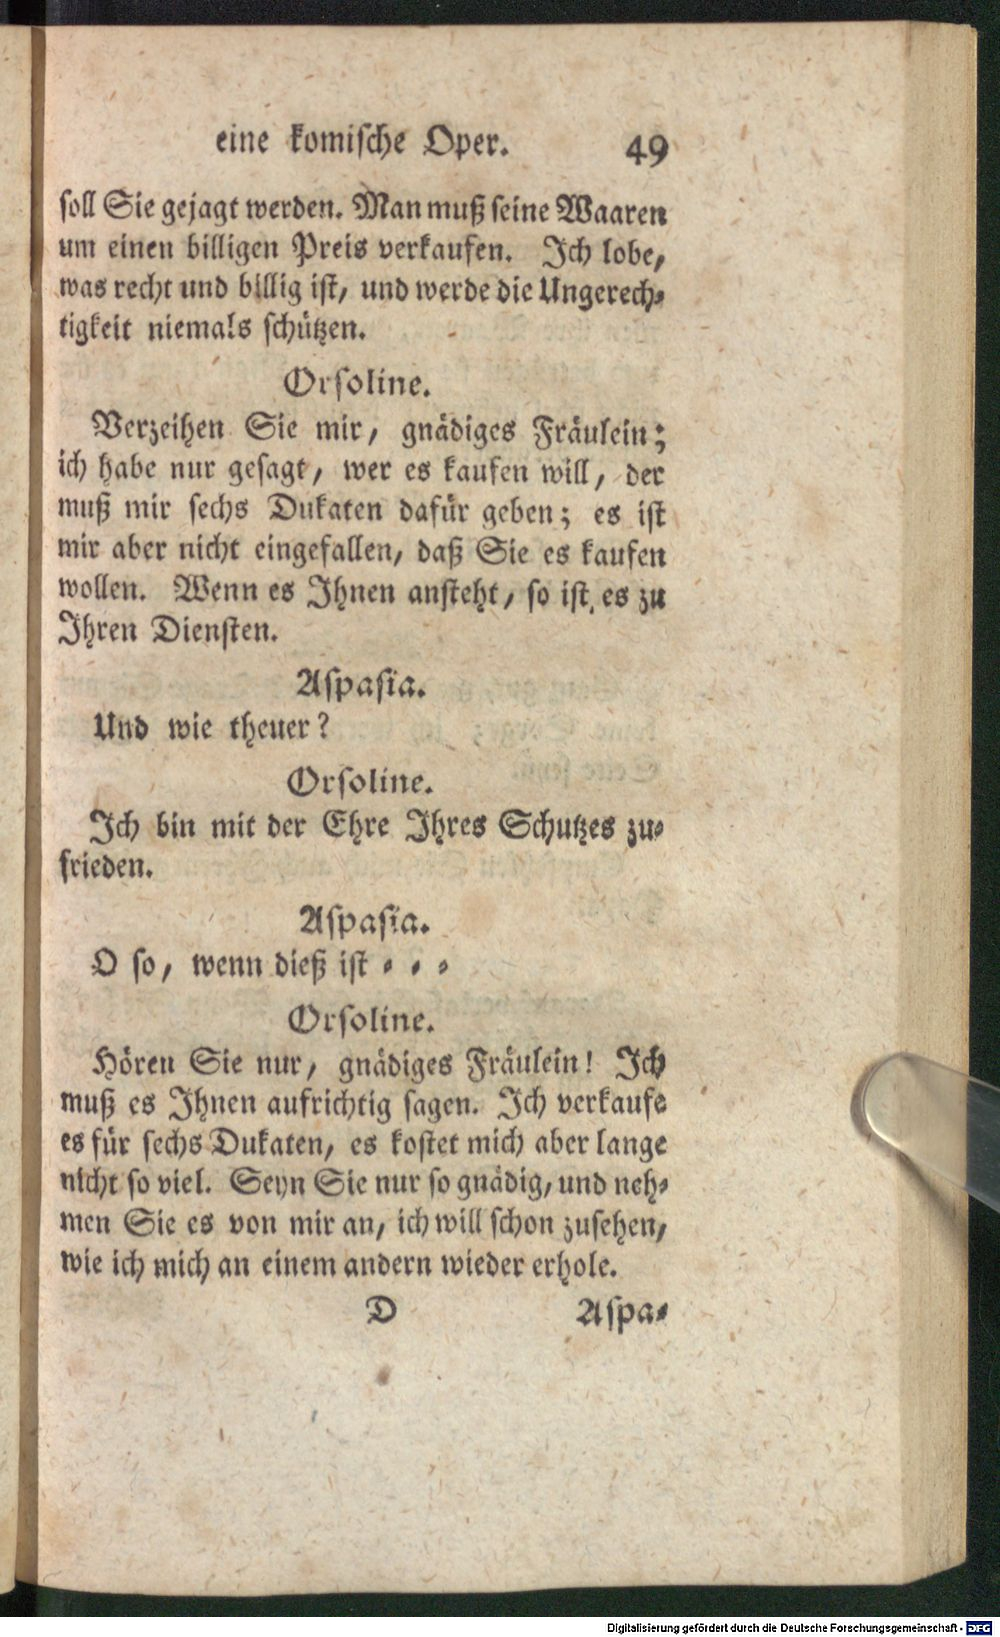 eine komische Oper. 49
soll Sie gejagt werden. Man muß seine Waaren
um einen billigen Preis verkaufen. Ich lobe,
was recht und billig ist, und werde die Ungerech-
tigkeit niemals schützen.
Orsoline.
Verzeihen Sie mir, gnädiges Fräulein;
ich habe nur gesagt, wer es kaufen will, der
muß mir sechs Dukaten dafür geben; es ist
mir aber nicht eingefallen, daß Sie es kaufen
wollen. Wenn es Ihnen ansteht, so ist es zu
Ihren Diensten.
Aspasia.
Und wie theuer?
Orsoline.
Ich bin mit der Ehre Ihres Schutzes zu-
frieden.
Aspasia.
O so, wenn dieß ist - - -
Orsoline.
Hören Sie nur, gnädiges Fräulein! Ich
muß es Ihnen aufrichtig sagen. Ich verkaufe
es für sechs Dukaten, es kostet mich aber lange
nicht so viel. Seyn Sie nur so gnädig, und neh-
men Sie es von mir an, ich will schon zusehen,
wie ich mich an einem andern wieder erhole.
D Aspa-
Digitalisierung gefördert durch die Deutsche Forschungsgemeinschaft - DFG